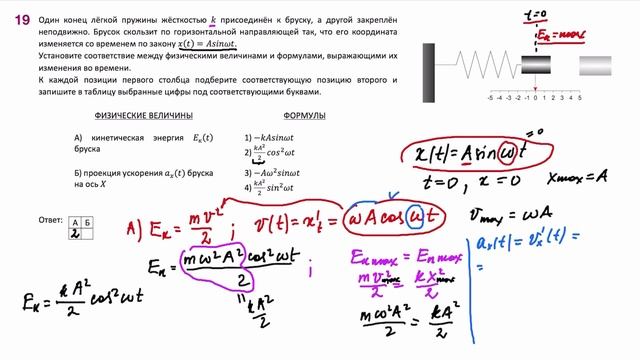 19
Один конец лёгкой пружины жёсткостью k присоединён к бруску, а другой закреплён
неподвижно. Брусок скользит по горизонтальной направляющей так, что его координата
изменяется со временем по закону x(t) = Asinωt.
Установите соответствие между физическими величинами и формулами, выражающими их
изменения во времени.
К каждой позиции первого столбца подберите соответствующую позицию второго и
запишите в таблицу выбранные цифры под соответствующими буквами.
t=0
Eк=max
-5 -4 -3 -2 -1 0 1 2 3 4 5
ФИЗИЧЕСКИЕ ВЕЛИЧИНЫ
ФОРМУЛЫ
А) кинетическая энергия Eₖ(t)
бруска
Б) проекция ускорения aₓ(t) бруска
на ось X
1) −kAsinωt
2) kA²/2 cos²ωt
3) −Aω²sinωt
4) kA²/2 sin²ωt
x(t)=Asinωt =0
t=0, x=0 Xmax=A
Ответ:
А Б
2
А) Eк = mv²/2 ; v(t)=x't = ωAcosωt
vmax = ωA
Eк = mω²A²cos²ωt/2 ;
" kA²/2
Eк = kA²/2 cos²ωt
Eкmax = Eпmax
mv²max/2 = kx²max/2
mω²A²/2 = kA²/2
ax(t)=vx'(t)=
=